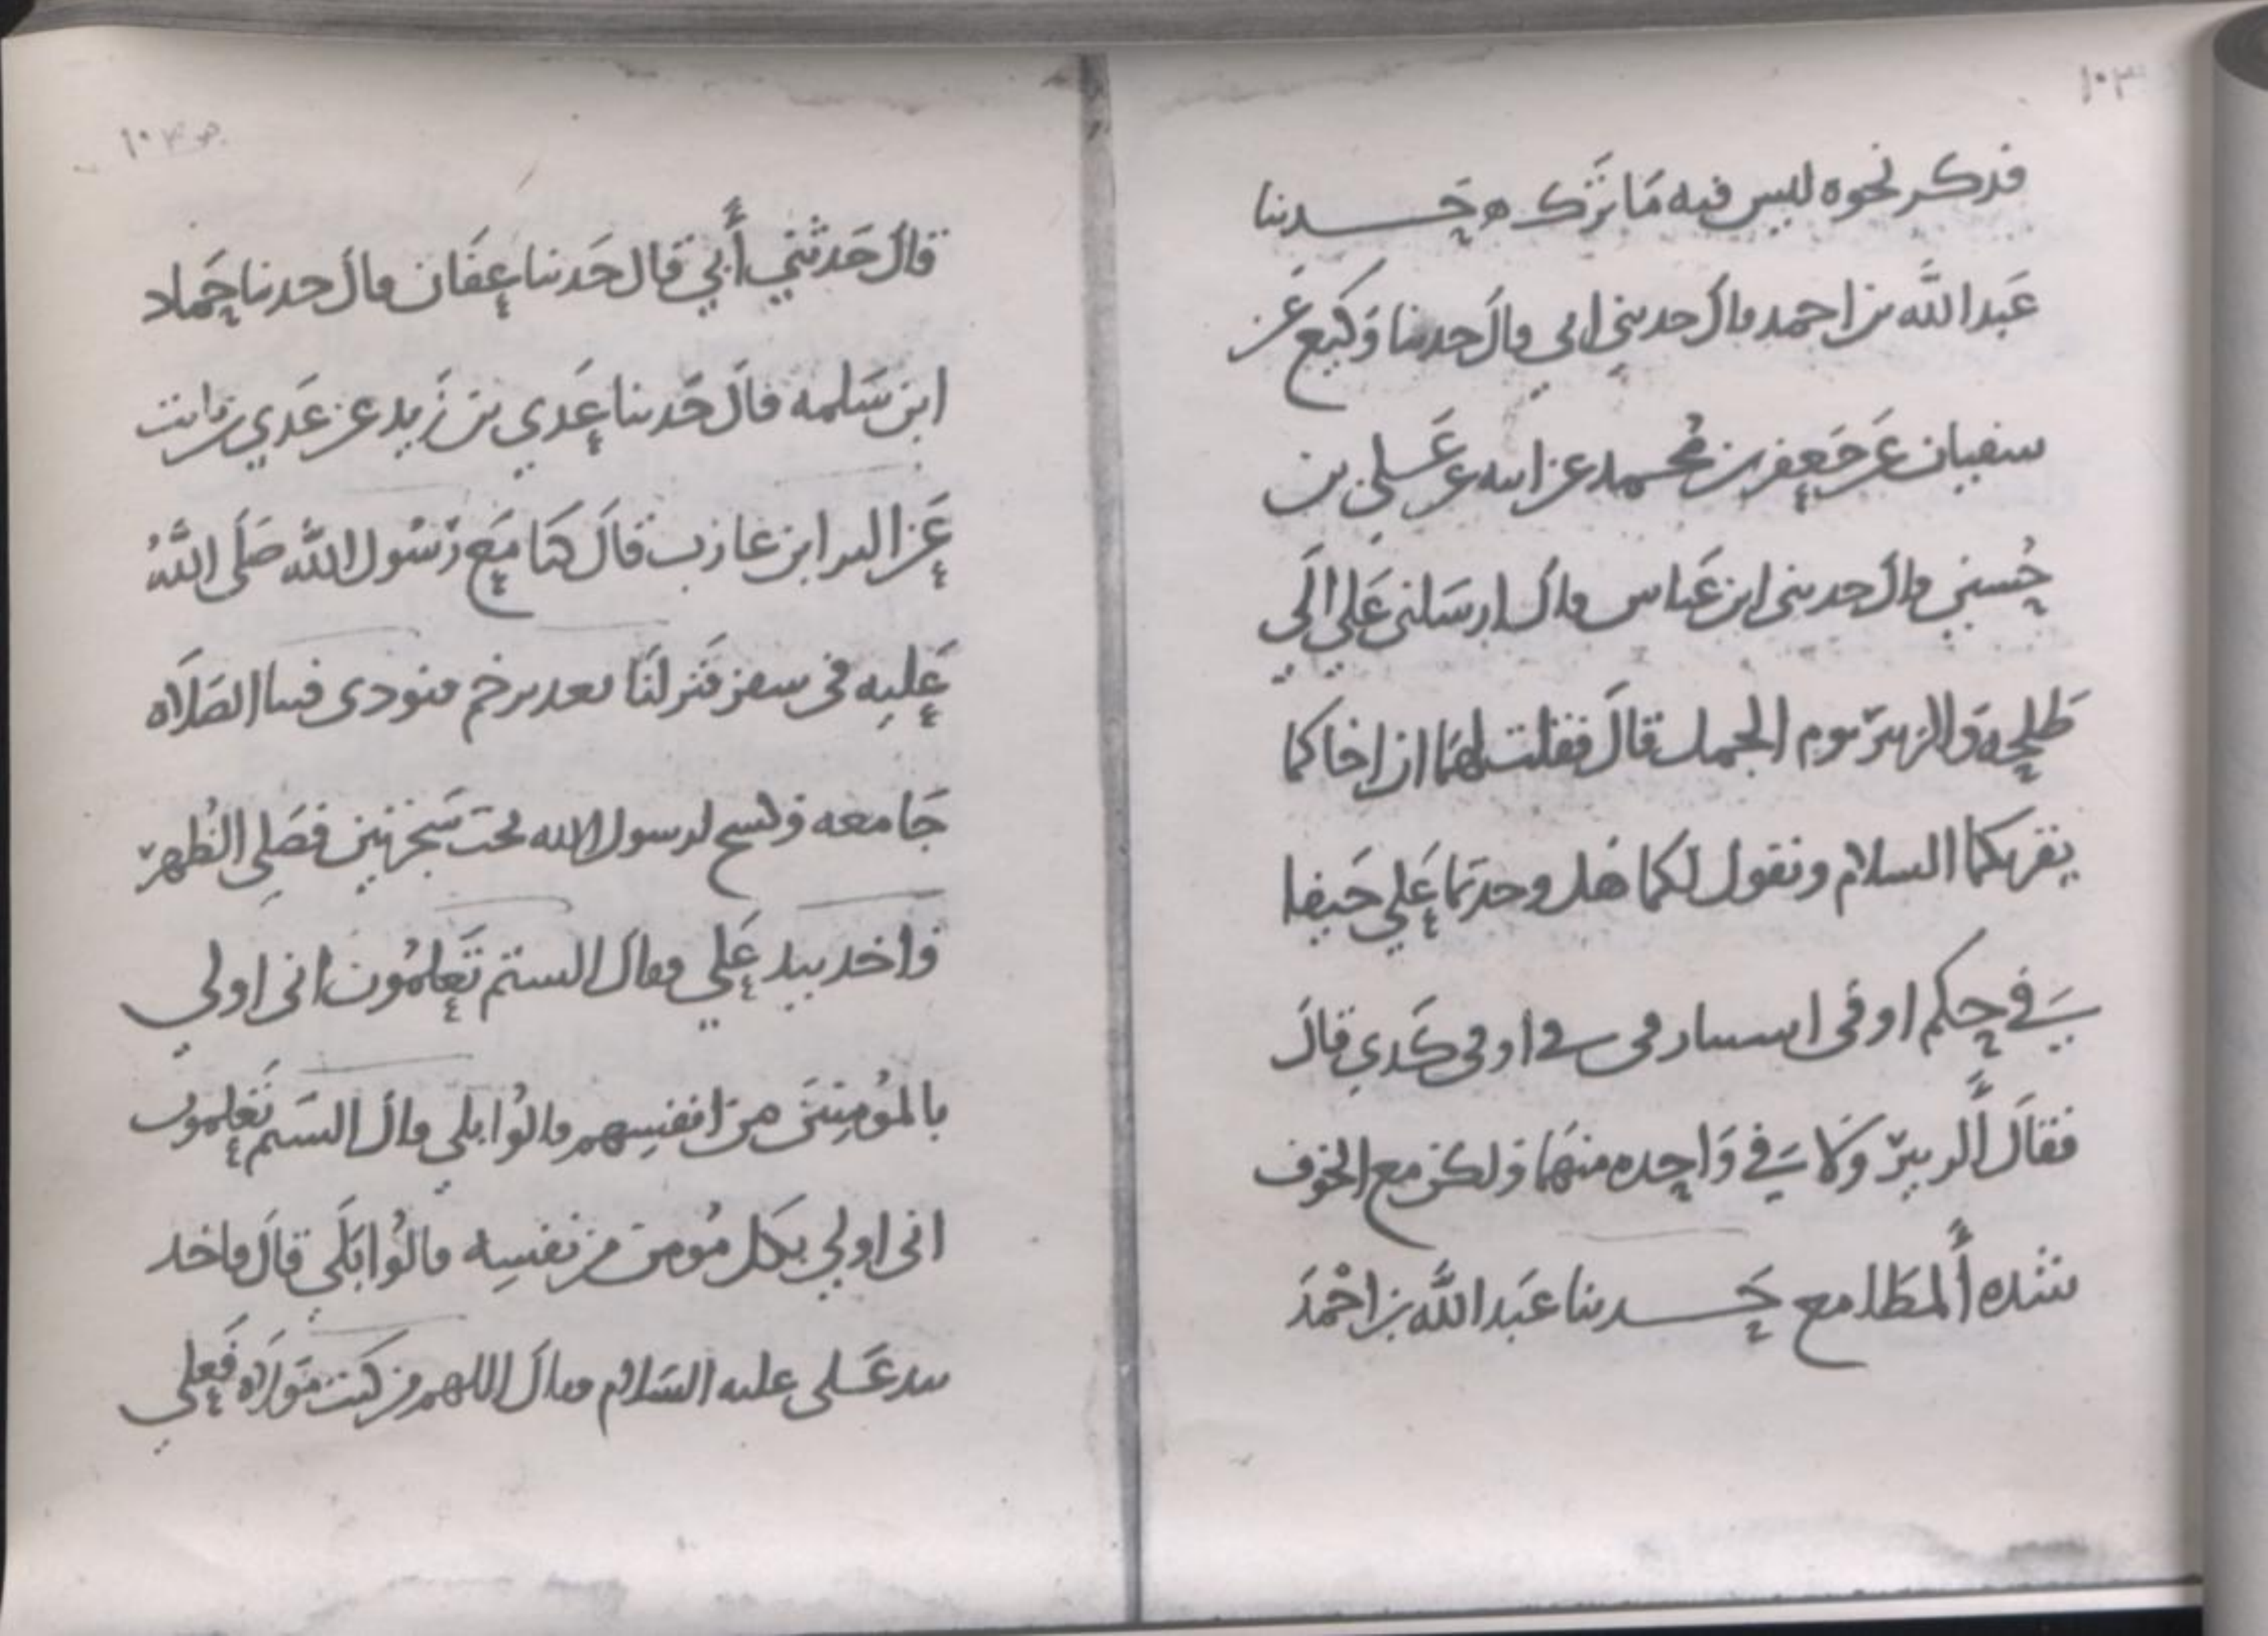 ١٠٣
فذكر نحوه ليس فيه ما نترك ه حدثنا
عبد الله بن احمد قال حدثني ابي قال حدثنا وكيع عن
سفيان عن جعفر بن محمد عن ابيه عن علي بن
حسين قال حدثني ابن عباس قال ارسلني علي الي
طلحة والزبير يوم الجمل قال فقلت لهما ان اخاكما
يقرئكما السلام ويقول لكما هل وجدتما علي حيفا
في حكم او في او في كذي قال
فقال الزبير ولا في واحده منهما ولكن مع الخوف
شده المطامع حدثنا عبد الله بن احمد
قال حدثني أبي قال حدثنا عفان قال حدثنا حماد
ابن سلمه قال حدثنا عدي بن زيد عن عدي بن ثابت
عن البرا بن عازب قال كنا مع رسول الله صلى الله
عليه في سفر فنزلنا بغدير خم فنودي فينا الصلاه
جامعه وكسح لرسول الله تحت شجرتين فصلي الظهر
فاخذ بيد علي فقال الستم تعلمون اني اولي
بالمؤمنين من انفسهم قالوا بلي قال الستم تعلمون
اني اولي بكل مؤمن من نفسه قالوا بلي قال فاخذ
بيد علي عليه السلام فقال اللهم من كنت مولاه فعلي